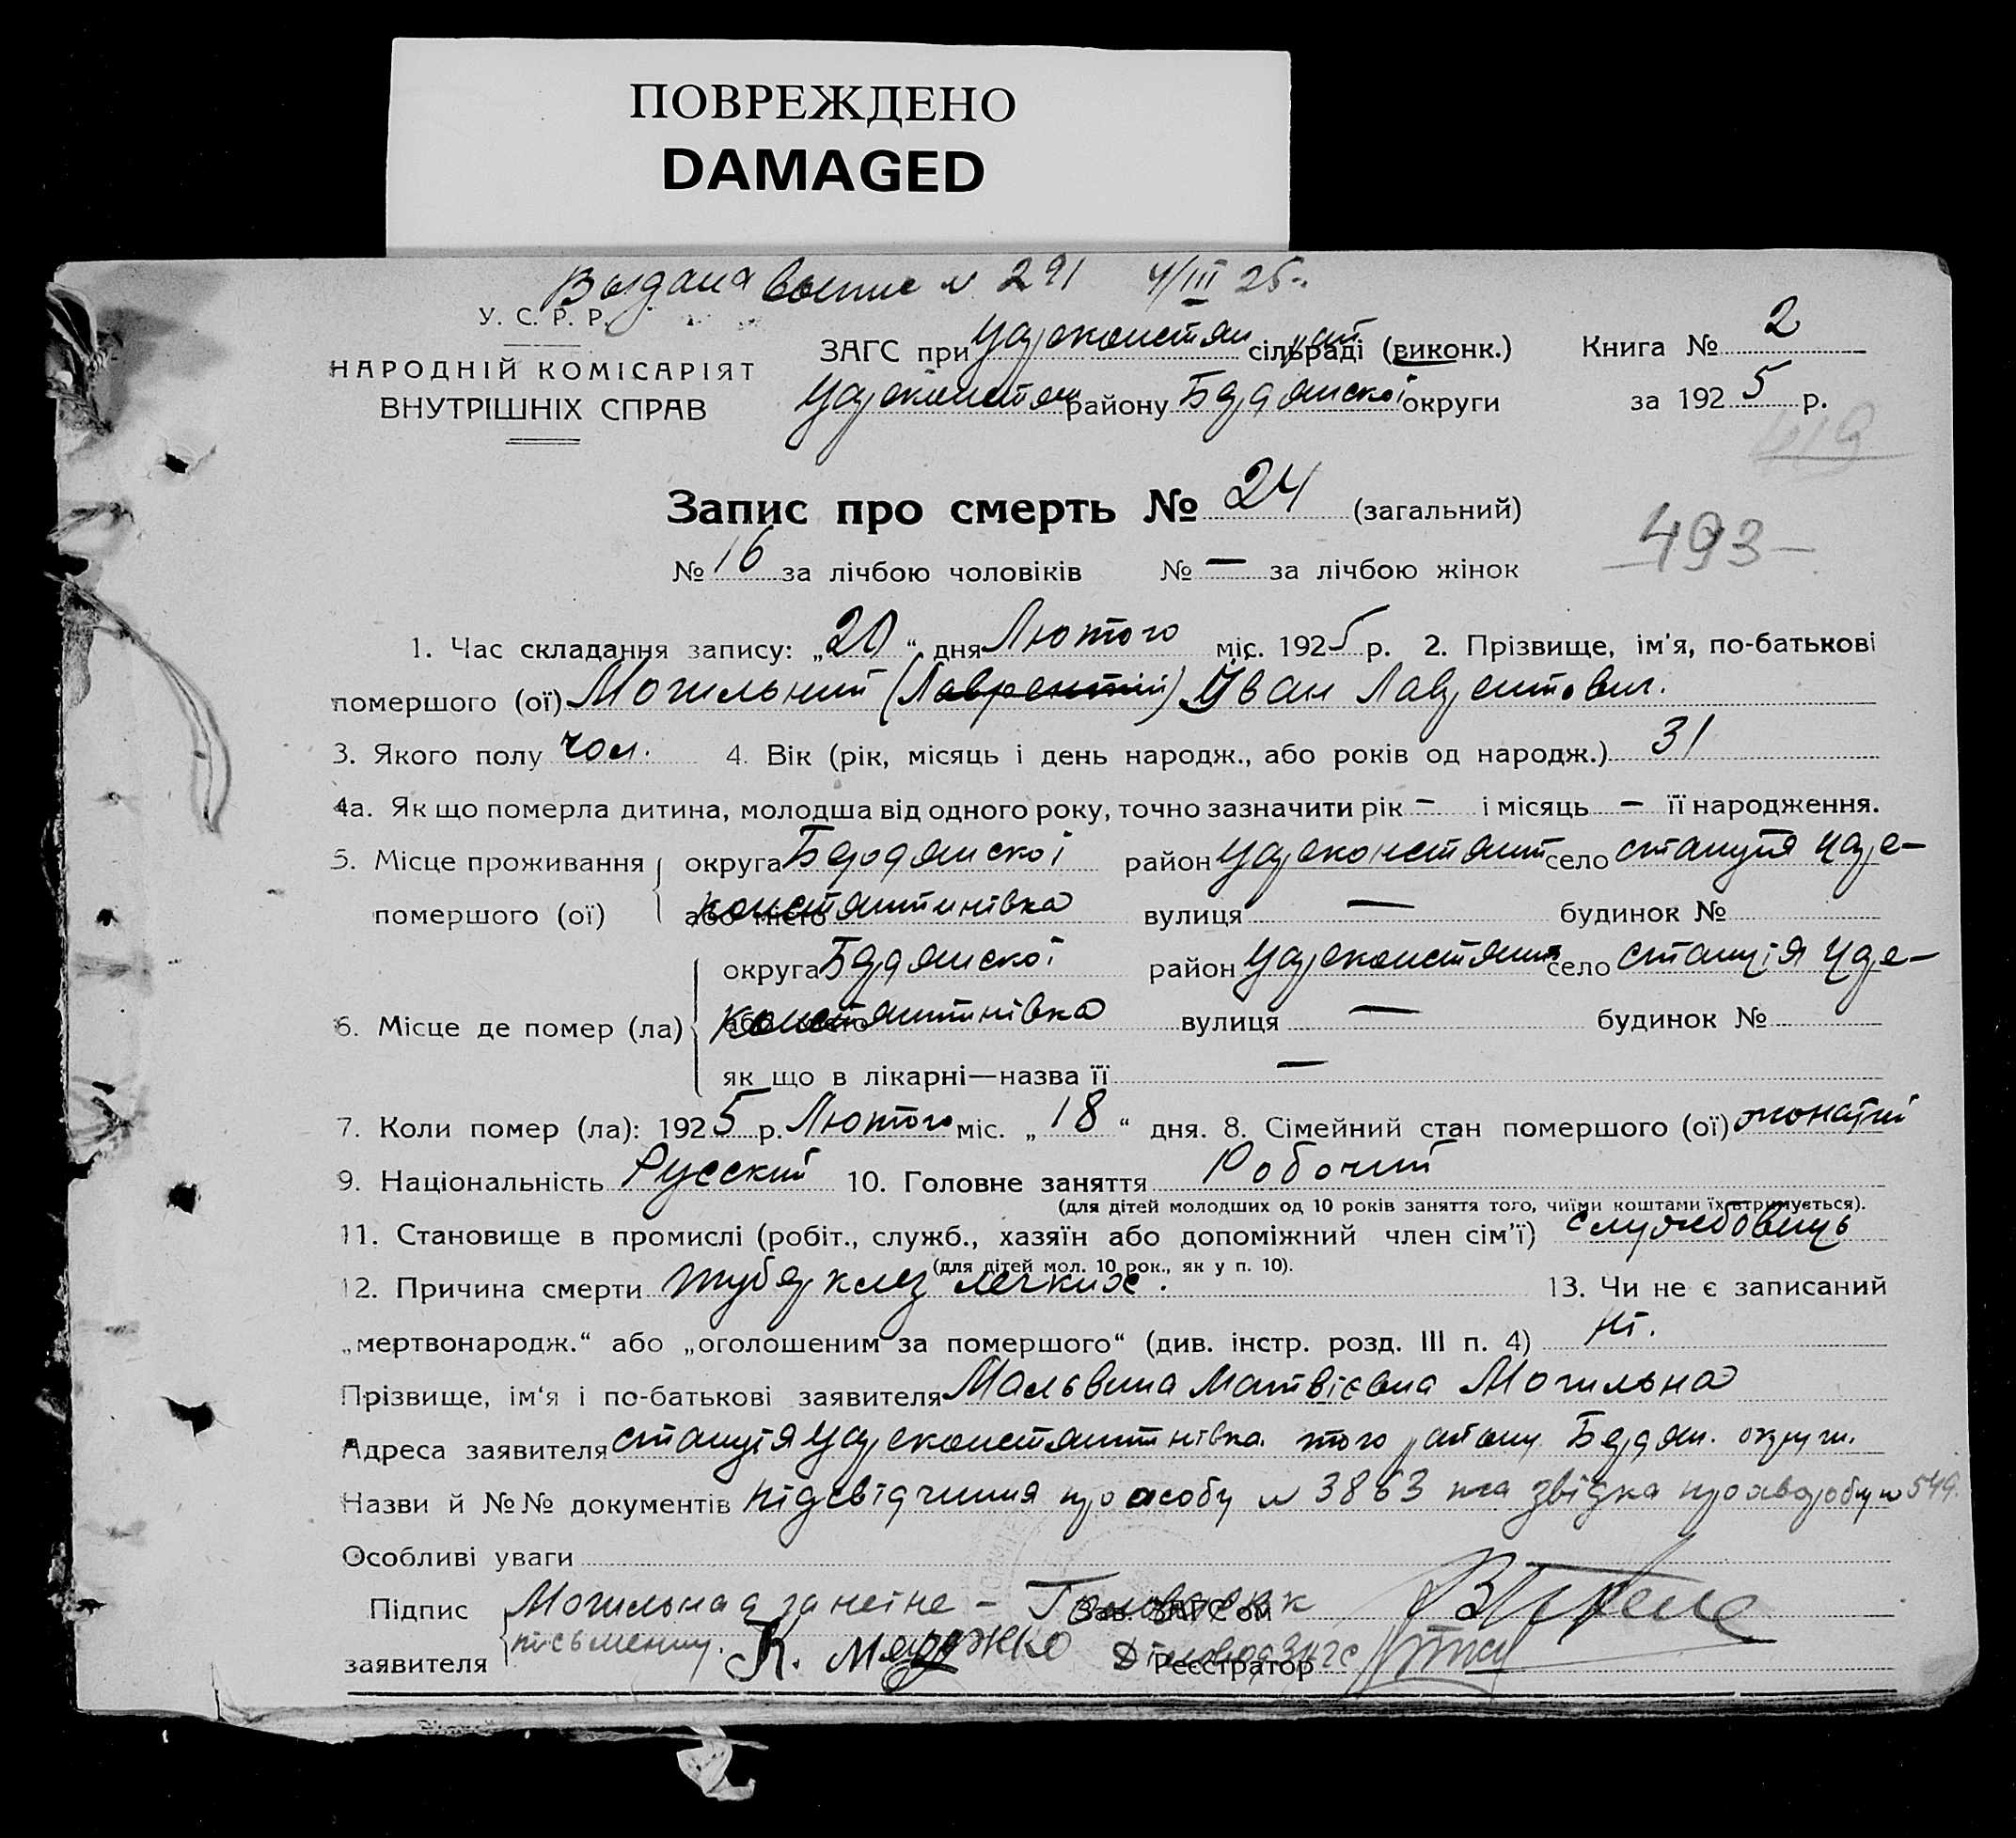 ПОВРЕЖДЕНО
DAMAGED
Выдана выпис N 291 4/III 25 г.
У. С. Р. Р.
НАРОДНІЙ КОМІСАРІЯТ
ВНУТРІШНІХ СПРАВ
ЗАГС при Царекончстан сільраді (виконк.) Книга № 2
Цареконстан району Бердянскої округи за 1925 р.
419
Запис про смерть № 24 (загальний)
493-
№ 16 за лічбою чоловіків № — за лічбою жінок
1. Час складання запису: „20“ дня Лютого міс. 1925 р. 2. Прізвище, ім'я, по-батькові
помершого (ої) Могильний (Лаврентій) Іван Лаврентович.
3. Якого полу чол. 4. Вік (рік, місяць і день народж., або років од народж.) 31
4а. Як що померла дитина, молодша від одного року, точно зазначити рік – і місяць – її народження.
5. Місце проживання округа Бердянскої район Цареконстант село станція Царе-
помершого (ої) або місто константинівка вулиця — будинок №
округа Бердянскої район Цареконстант село станція Царе-
6. Місце де помер (ла) або місто константинівка вулиця — будинок №
як що в лікарні—назва її —
7. Коли помер (ла): 1925 р. Лютого міс. „18“ дня. 8. Сімейний стан помершого (ої) жонатий
9. Національність Русский 10. Головне заняття Робочий
(для дітей молодших од 10 років заняття того, чиїми коштами їх втримується).
11. Становище в промислі (робіт., служб., хазяїн або допоміжний член сім'ї) службовець
(для дітей мол. 10 рок., як у п. 10).
12. Причина смерти туберклез легких. 13. Чи не є записаний
„мертвонародж.“ або „оголошеним за помершого“ (див. інстр. розд. III п. 4) ні.
Прізвище, ім'я і по-батькові заявителя Мальвина Матвієвна Могильна
Адреса заявителя станція Цареконстантнівка того району Бердян. округи.
Назви й №№ документів підсвідчення про особу N 3863 та звідка про хворобу N 549.
Особливі уваги
Підпис Могильна а за неіне- Зав. ЗАГС'ом
письменну. К. Мережко
заявителя Діловод Загс Реєстратор